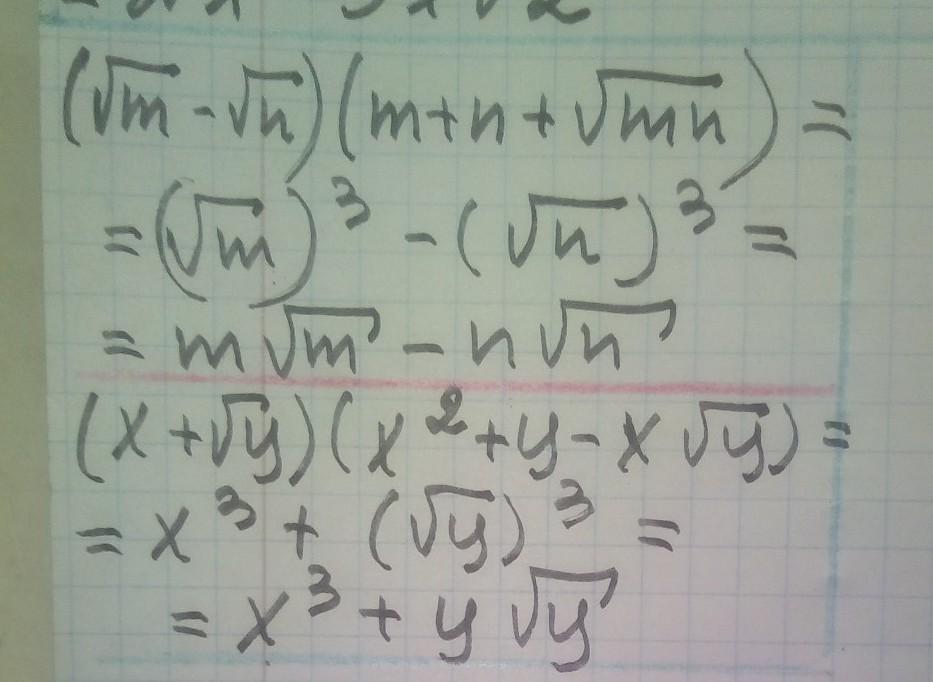 (√m - √n)(m+n+√mn) =
= (√m)³ - (√n)³ =
= m√m - n√n
(x+√y)(x²+y-x√y) =
= x³ + (√y)³ =
= x³ + y√y